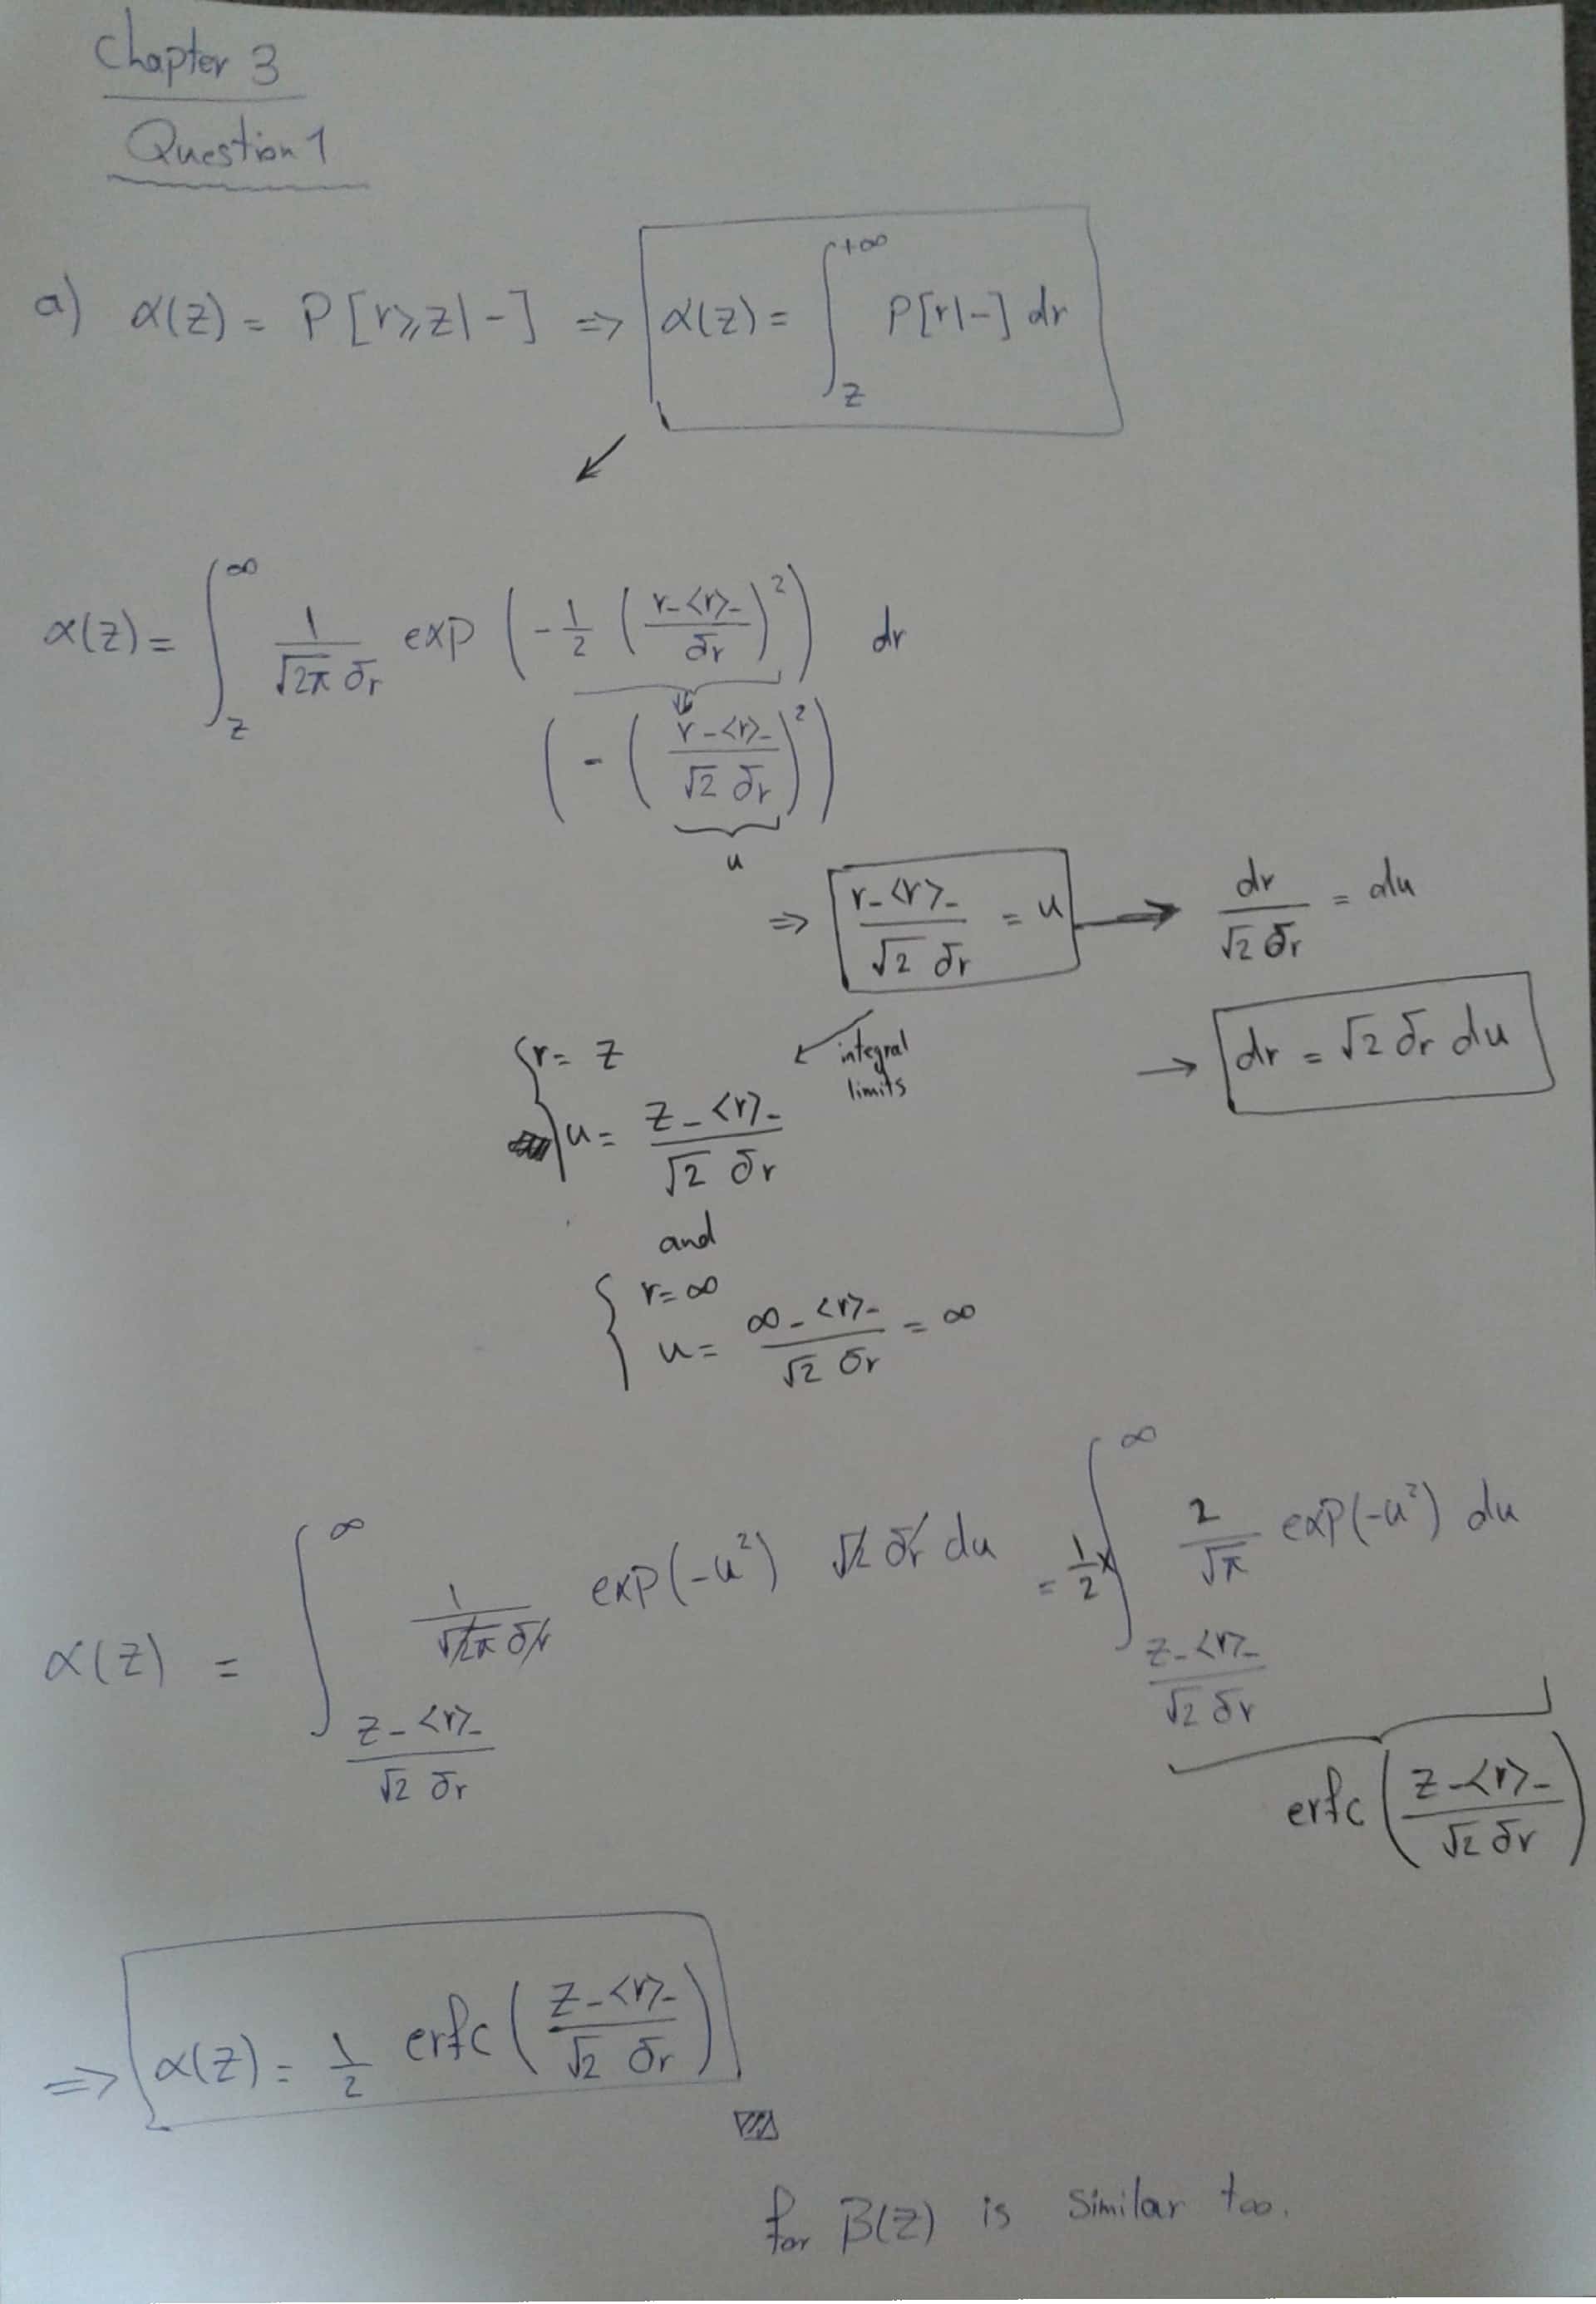 Chapter 3
Question 1
a) α(z) = P[r≥z|-] => α(z) = ∫_z^{+∞} P[r|-] dr
α(z) = ∫_z^∞ 1/(√2π σr) exp(-1/2 ((r-<r>-)/σr)²) dr
(-((r-<r>-)/(√2 σr))²)
u
=> (r-<r>-)/(√2 σr) = u → dr/(√2 σr) = du
{r= z
integral
limits
→ dr = √2 σr du
u= (z-<r>-)/(√2 σr)
and
{ r=∞
u= (∞-<r>-)/(√2 σr) = ∞
α(z) = ∫_{(z-<r>-)/(√2 σr)}^∞ 1/(√2π σr) exp(-u²) √2 σr du = 1/2 × ∫_{(z-<r>-)/(√2 σr)}^∞ 2/√π exp(-u²) du
erfc((z-<r>-)/(√2 σr))
=> α(z) = 1/2 erfc((z-<r>-)/(√2 σr))
for β(z) is similar too.